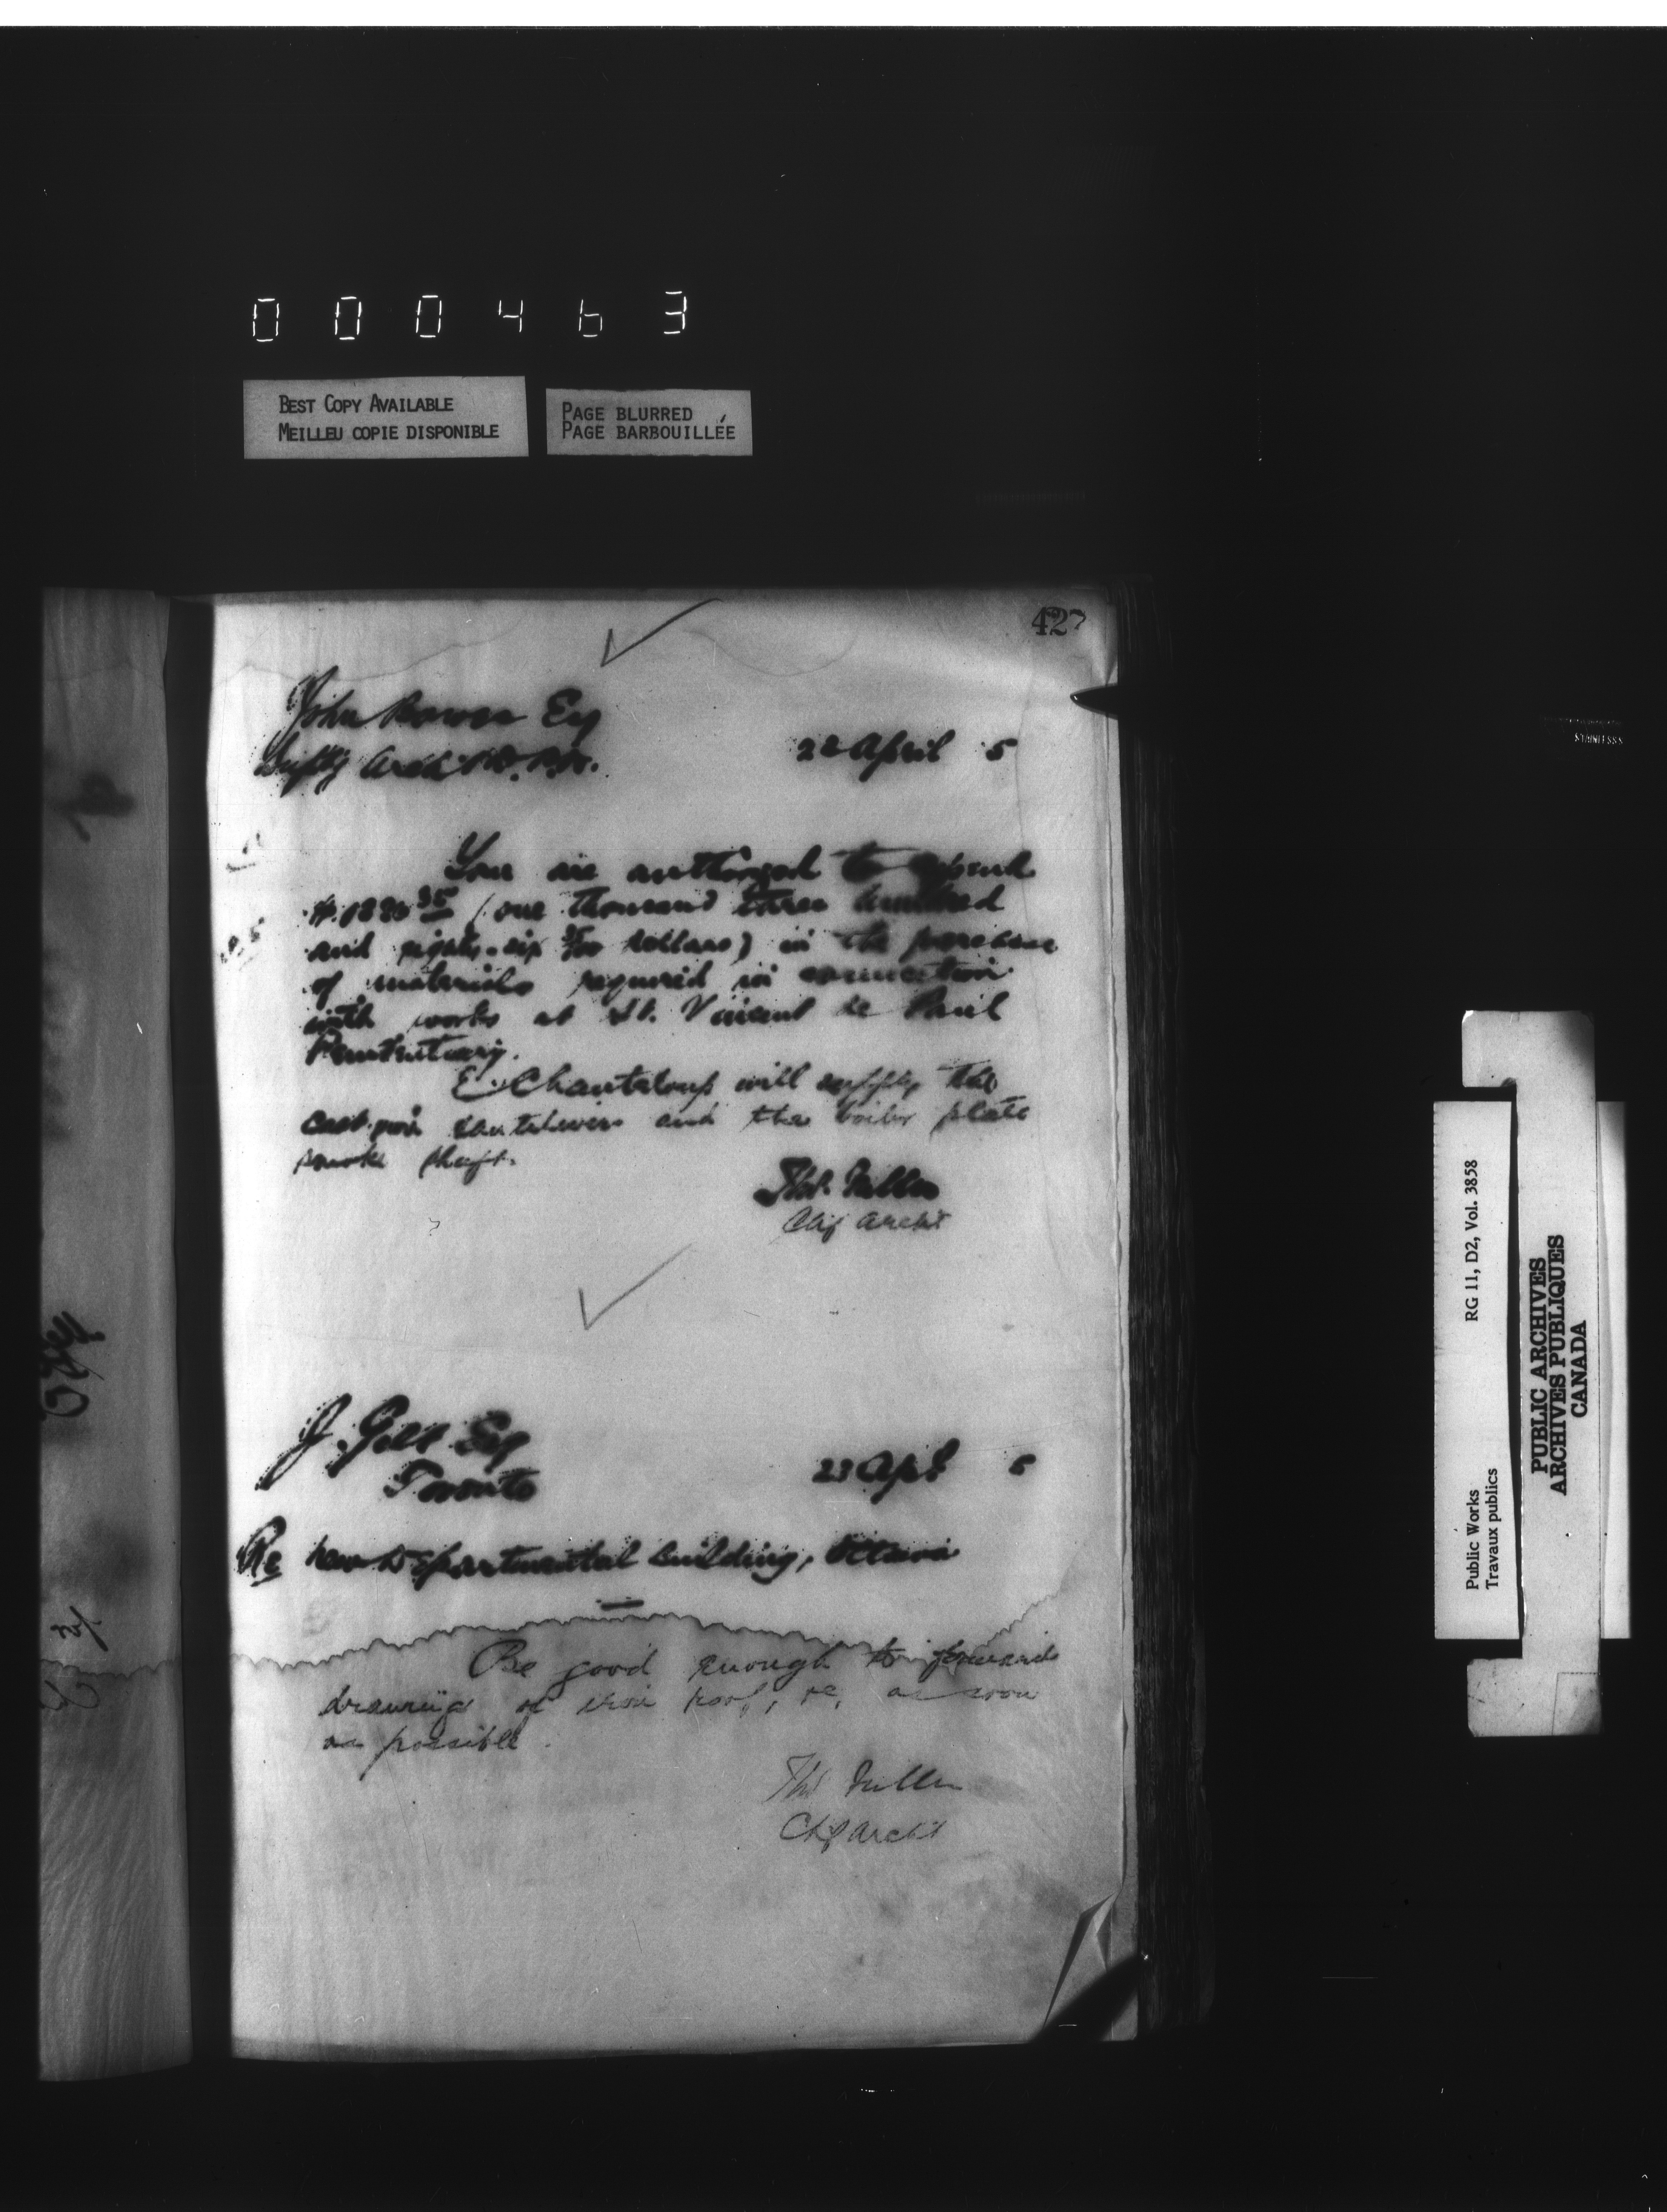 000463
BEST COPY AVAILABLE
MEILLEU COPIE DISPONIBLE
PAGE BLURRED
PAGE BARBOUILLÉE
427
John Bowes Esq
Archt D.P.W.
22 April 5
You are authorized to expend
$1386 35 (one thousand three hundred
and eighty-six 35/100 dollars) in the purchase
of materials required in connection
with works at St. Vincent de Paul
Penitentiary.
E. Chanteloup will supply the
cast iron cantilevers and the boiler plate
smoke shaft.
Thos. Fuller
Chf Archt
J. Esq
Toronto
23 Apl 5
Re new Departmental building, Ottawa
Be good enough to forward
drawings of iron roof, &c, as soon
as possible.
Thos Fuller
Chf Archt
Public Works
Travaux publics
RG 11, D2, Vol. 3858
PUBLIC ARCHIVES
ARCHIVES PUBLIQUES
CANADA